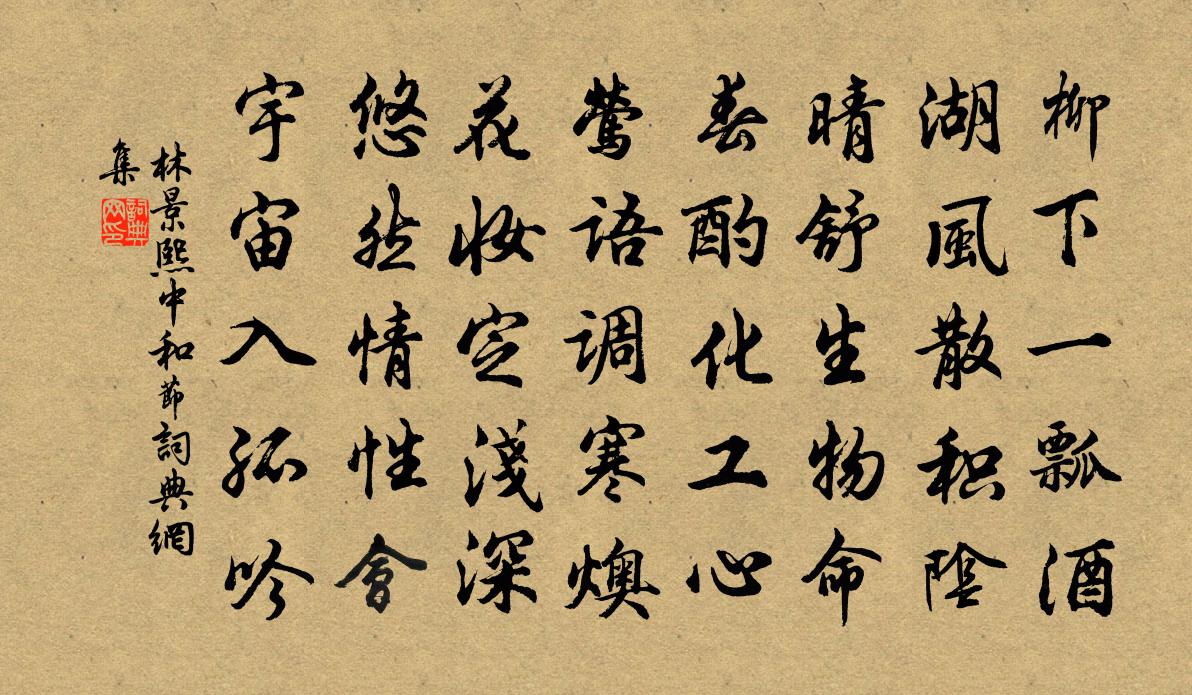 柳下一瓢酒
湖風散积陰
晴舒生物命
春酌化工心
莺語调寒燠
花妝定淺深
悠然情性會
宇宙入孤吟
林景熙中和節詞典網
集
詞典
网印